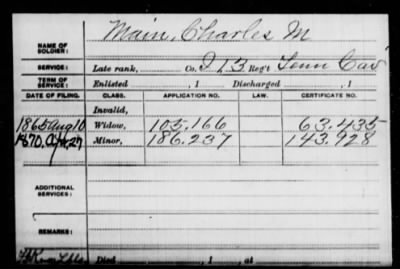 NAME OF SOLDIER: Main, Charles M
SERVICE: Late rank, Co. D 13 Reg't Tenn Cav
TERM OF SERVICE: Enlisted , 1 Discharged , 1
DATE OF FILING. CLASS. APPLICATION NO. LAW. CERTIFICATE NO.
Invalid,
1865 Aug 10 Widow, 105.166 63.435
1870, Apr 27 Minor, 186.237 143.928
ADDITIONAL SERVICES:
REMARKS:
Died , 1 , at